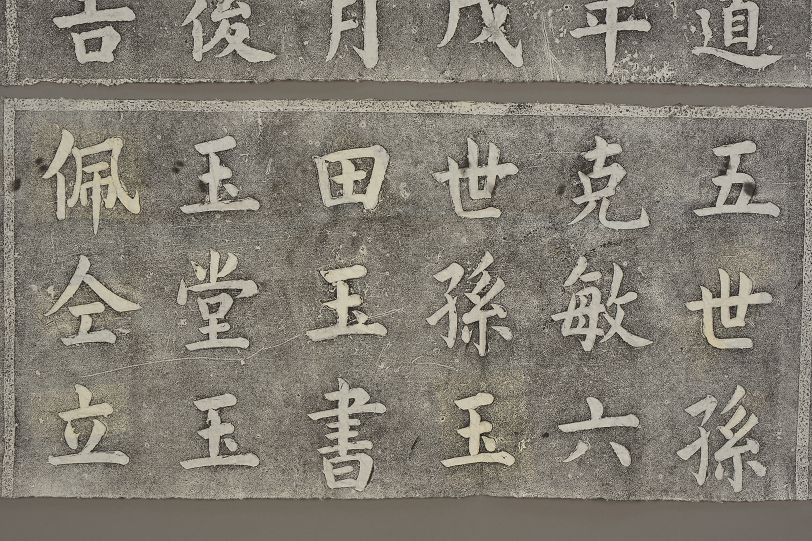 道
年
戊
月
後
吉
五世孫
克敏六
世孫玉
田玉書
玉堂玉
佩仝立